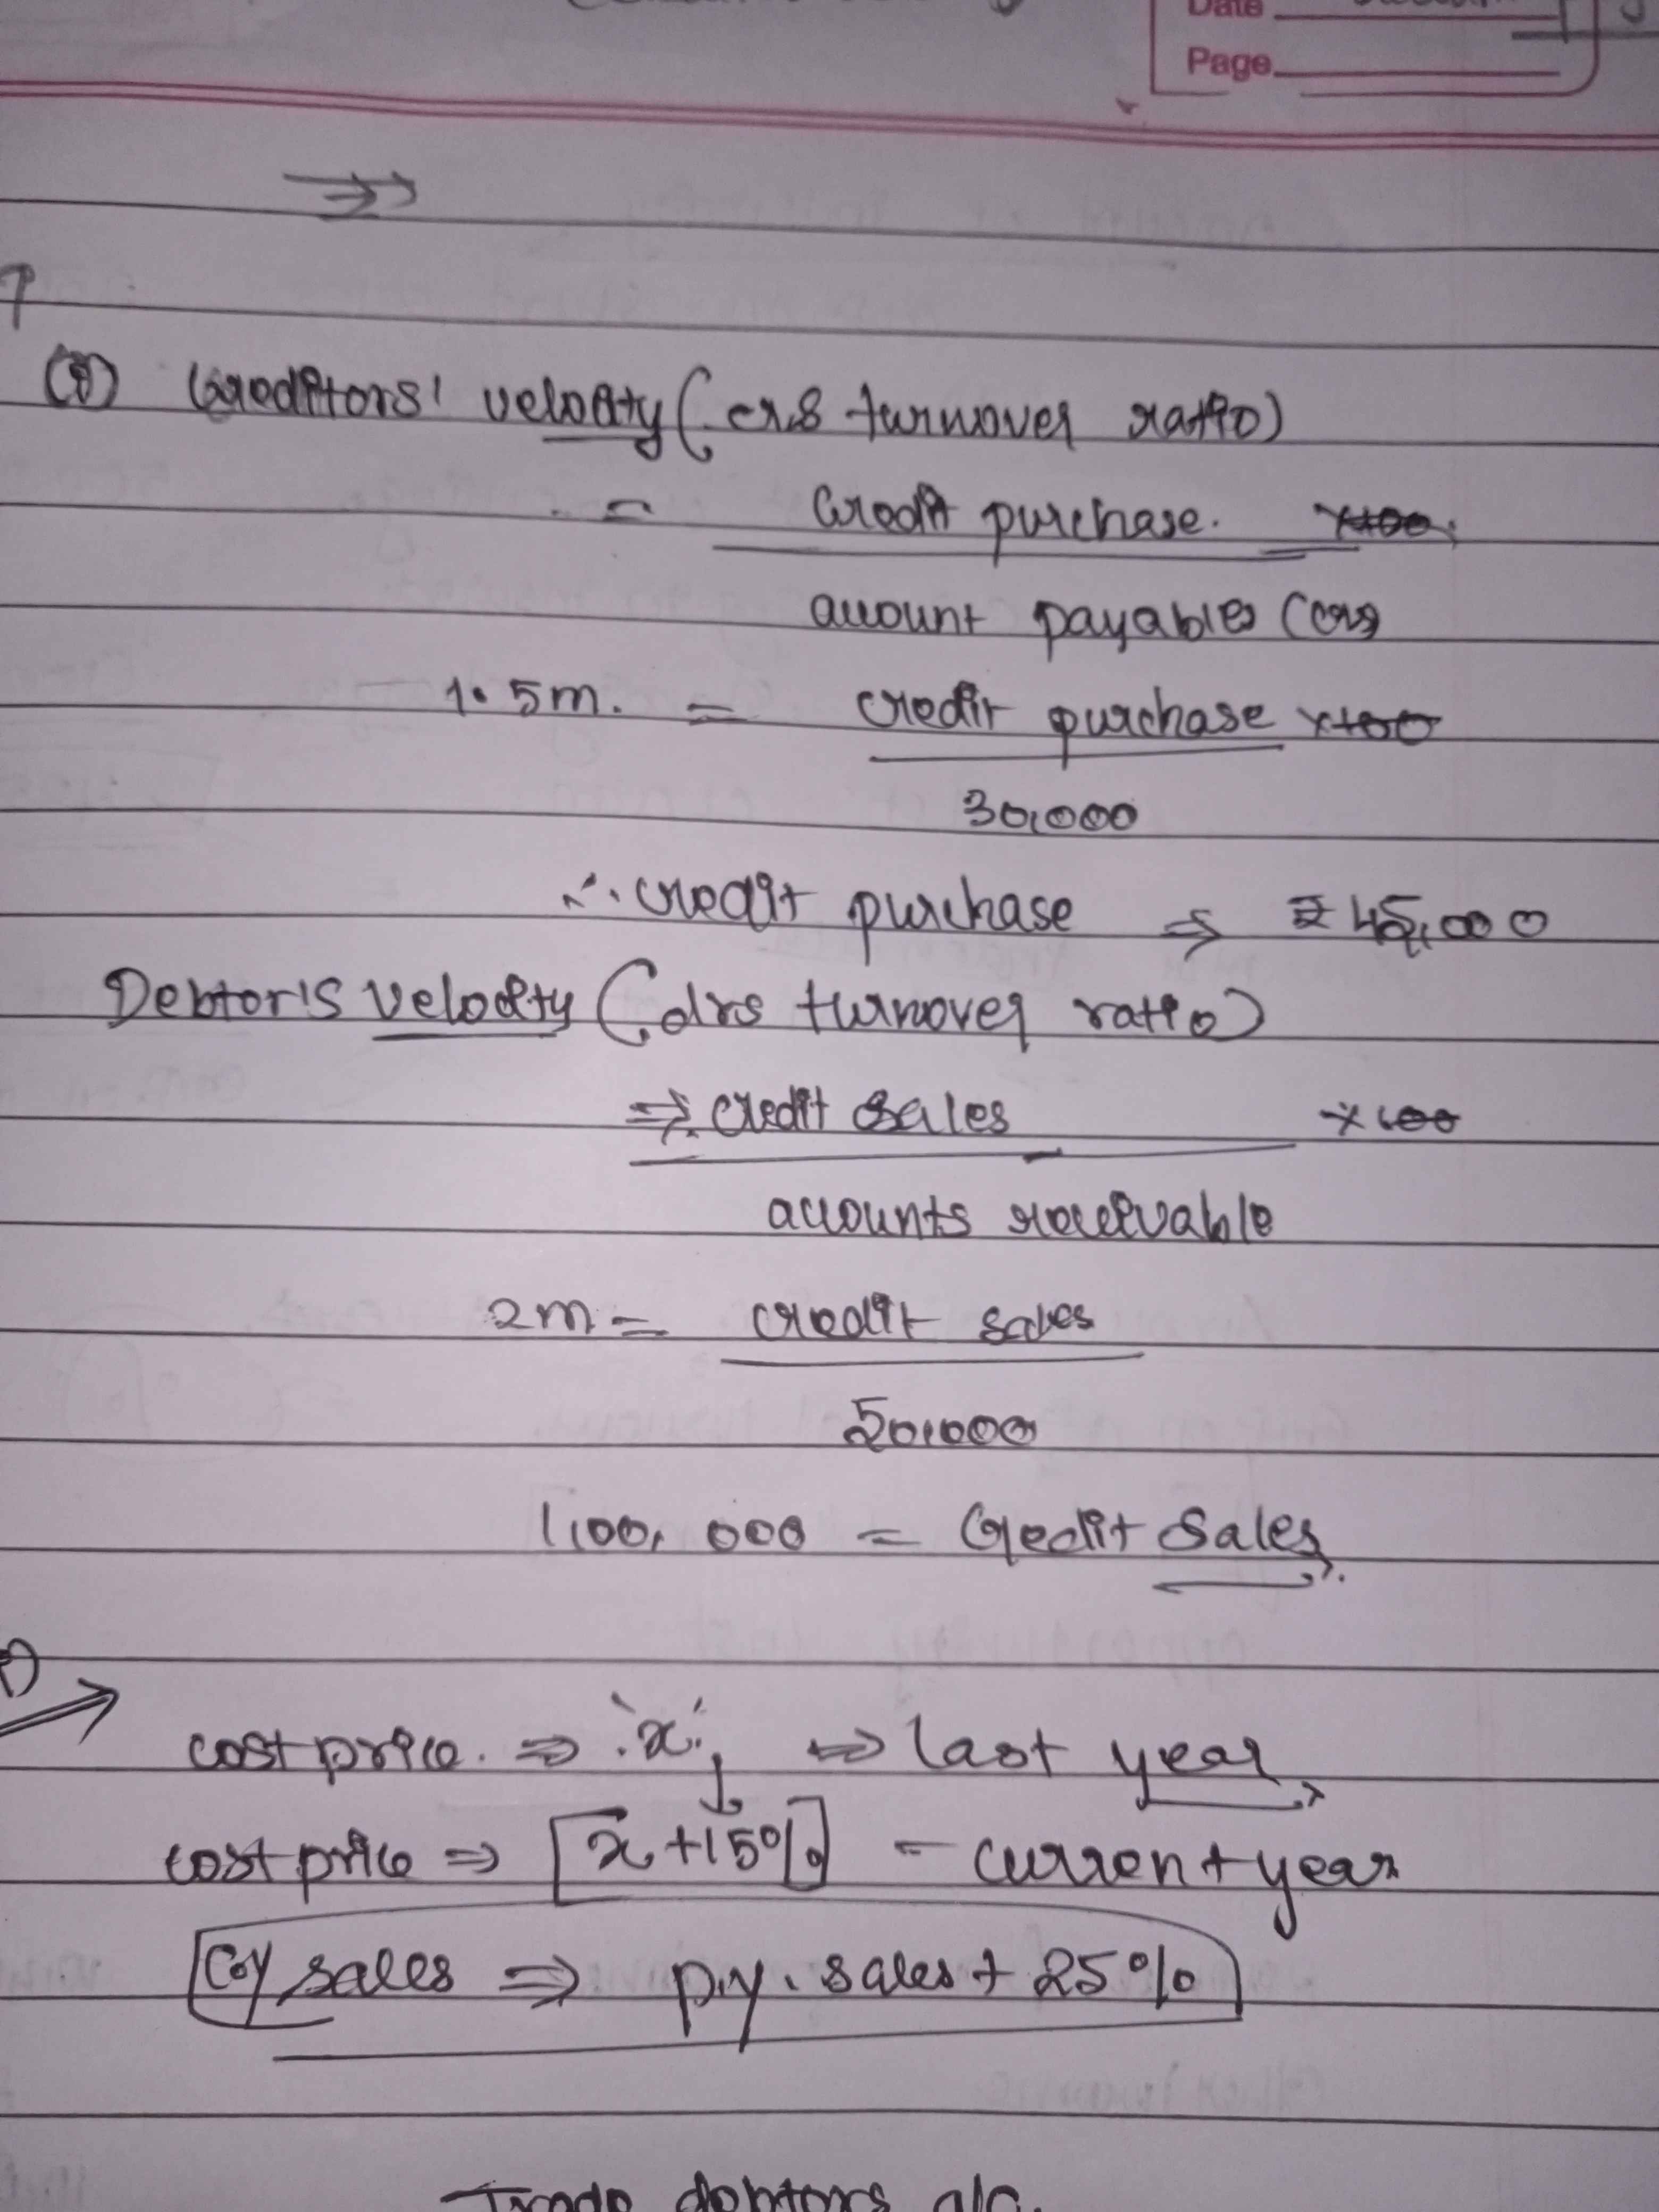 Date
Page
⇒
(8) Creditors' velocity (crs turnover ratio)
= Credit purchase. x100
account payables (crs
1.5m. = credit purchase x100
30,000
∴ credit purchase ⇒ ₹ 45,000
Debtor's velocity (drs turnover ratio)
⇒ credit sales x 100
accounts receivable
2m = credit sales
50,000
1,00,000 = Credit Sales
cost price. ⇒ 'x' ⇒ last year
cost price ⇒ [x + 15%] - current year
C.y sales ⇒ p.y. sales + 25%
Trade debtors a/c.